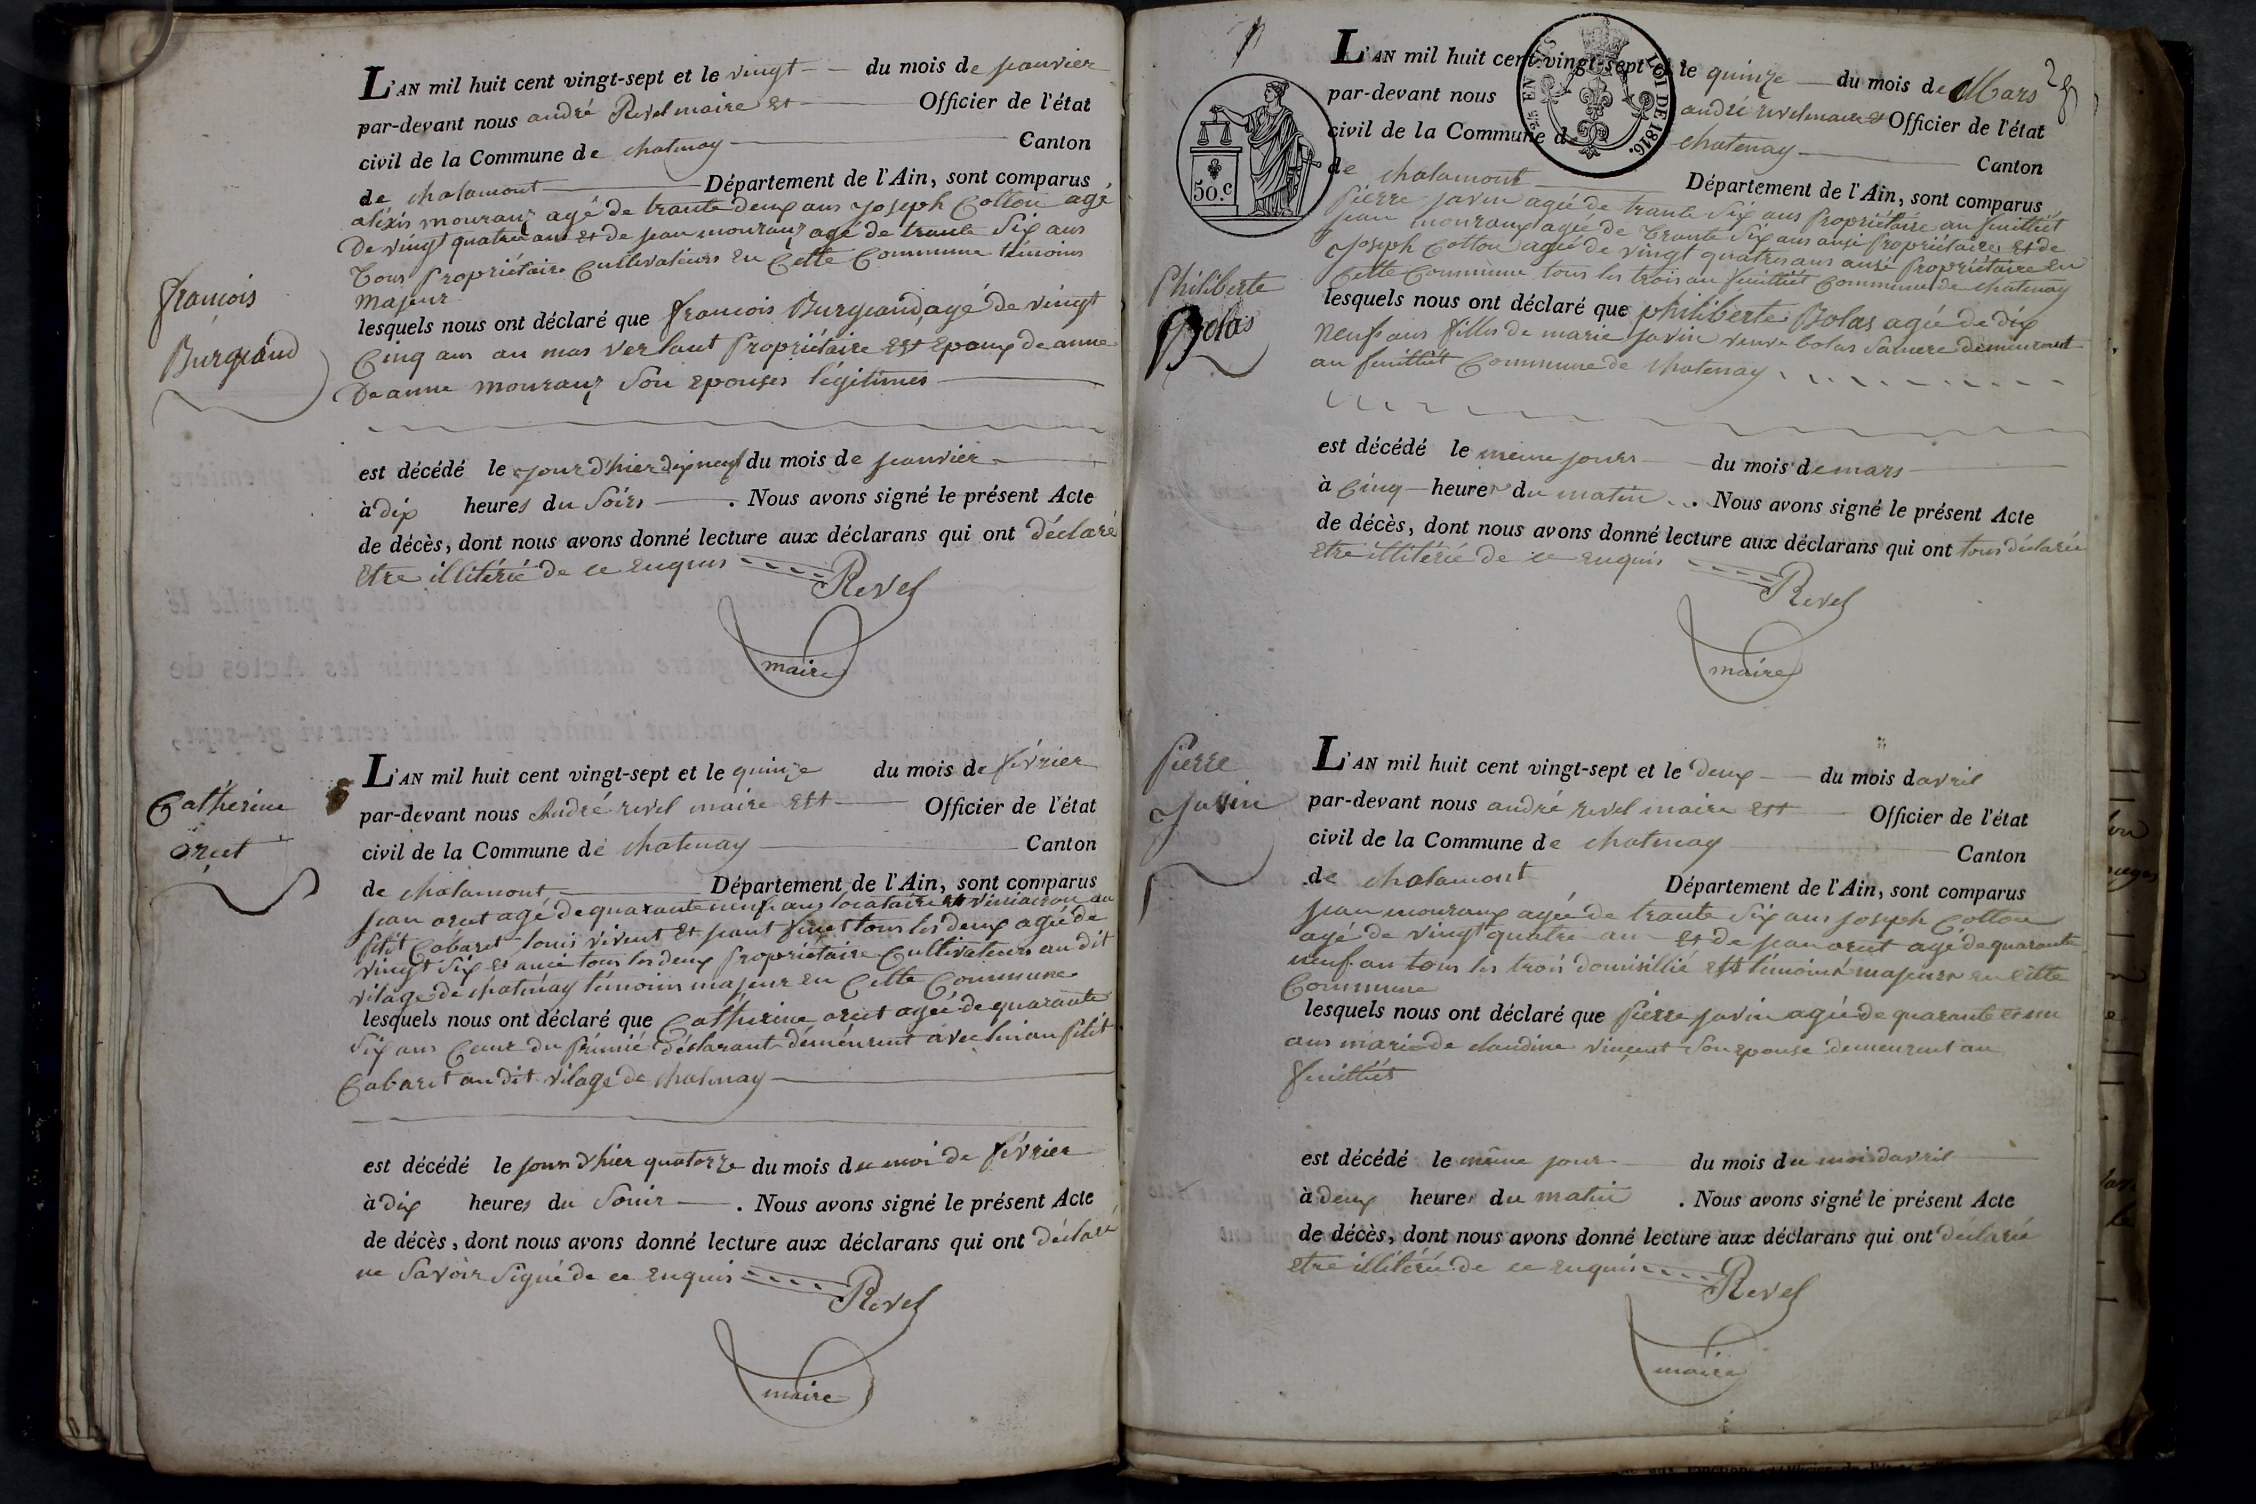 L'AN mil huit cent vingt-sept et le vingt du mois de janvier
par-devant nous andré Revel maire et Officier de l'état
civil de la Commune de chatenay Canton
de chalamont Département de l'Ain, sont comparus
aléxis mouranz agé de trante deux ans joseph Cotton agé
De vingt quatre ans et de jean mouranz agé de trante Six ans
tous propriétaire Cultivateurs en Cette Commune témoins
majeur
lesquels nous ont déclaré que françois Burgeand, agé de vingt
Cinq ans au mas verlaut propriétaire est Epoux de anne
De anne mouranz Son epouses légitimes
françois
Burgeand
est décédé le jour d'hier dix neuf du mois de janvier
à dix heures du Soirs . Nous avons signé le présent Acte
de décès, dont nous avons donné lecture aux déclarans qui ont déclaré
Etre illitérié de ce Enquis
Revel
maire
L'AN mil huit cent vingt-sept et le quinze du mois de février
par-devant nous André revel maire Est Officier de l'état
civil de la Commune de chatenay Canton
de chalamont Département de l'Ain, sont comparus
jean orcet agé de quarante neuf ans locataire au
petit Cabaret louis vivent et jeant tous les deux agée de
vingt Six et ausi tous les deux propriétaire Cultivateurs au dit
vilage de chatenay témoins majeur en Cette Commune
lesquels nous ont déclaré que Catherine orcet agée de quarante
Six ans Ceur du premié déclarant déméurent avec lui au petit
Cabaret au dit vilage de chatenay
Catherine
orcet
est décédé le jour d'hier quatorze du mois du moi de février
à dix heures du Souir . Nous avons signé le présent Acte
de décès, dont nous avons donné lecture aux déclarans qui ont déclaré
ne Savoir Signé de ce Enquis
Revel
maire
25 EN SUS LOI DE 1816.
50.c
L'AN mil huit cent vingt-sept et le quinze du mois de Mars
par-devant nous andré revel maire et Officier de l'état
civil de la Commune de chatenay Canton
de chalamont Département de l'Ain, sont comparus
pierre javin agée de trante Six ans propriétaire au feuilliet
jean mouranz agée de trante Six ans ausi propriétaire et de
joseph Cotton agée de vingt quatres ans ausi propriétaire en
Cette Commune tous les trois au feuilliet Commune de chatenay
lesquels nous ont déclaré que philiberte Bolas agée de dix
neufs ans filles de marie javin veuve bolas Samere demeurant
au feuilliet Commune de chatenay
Philiberte
Bolas
est décédé le meme jours du mois de mars
à Cinq heures du matin . Nous avons signé le présent Acte
de décès, dont nous avons donné lecture aux déclarans qui ont tous déclarée
Etre illitérié de ce enquis
Revel
maire
L'AN mil huit cent vingt-sept et le deux du mois davril
par-devant nous andré revel maire Est Officier de l'état
civil de la Commune de chatenay Canton
de chalamont Département de l'Ain, sont comparus
jean mouranz agée de trante Six ans joseph Cotton
agé de vingt quatre an et de jean orcet agé de quarante
neuf an tous les trois domisillié Est témoins majeurs en Cette
Commune
lesquels nous ont déclaré que pierre javin agée de quarante et un
ans mari de claudine vinçent Son epouse demeurent au
feuilliet
pierre
Javin
est décédé le même jour du mois du moi davril
à deux heures du matin . Nous avons signé le présent Acte
de décès, dont nous avons donné lecture aux déclarans qui ont déclarée
etre illitérée de ce enquis
Revel
maire